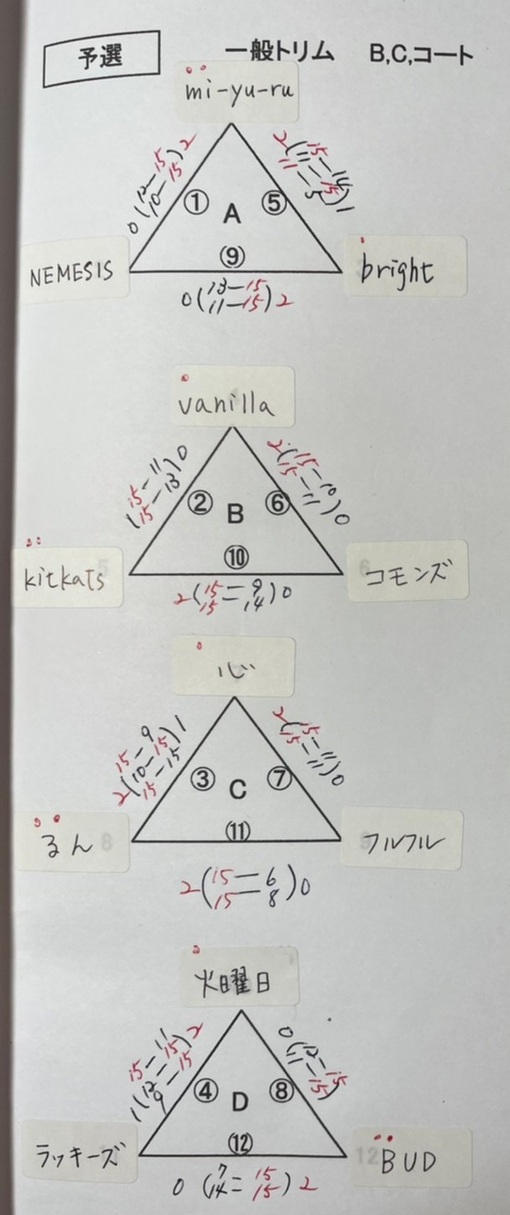 予選 一般トリム B,C,コート
mi-yu-ru
① A ⑤
⑨
0(12-15
10-15)2
NEMESIS
bright
0(13-15
11-15)2
vanilla
② B ⑥
⑩
(15-11
15-13)0
2(15-10
15-11)0
kitkats
コモンズ
2(15-9
15-14)0
心
③ C ⑦
⑪
2(15-9
10-15
15-15)1
2(15-11
15-11)0
るん
フルフル
2(15-6
15-8)0
火曜日
④ D ⑧
⑫
1(15-11
12-15
9-15)2
0(12-15
11-15)
ラッキーズ
12 BUD
0(7-15
14=15)2